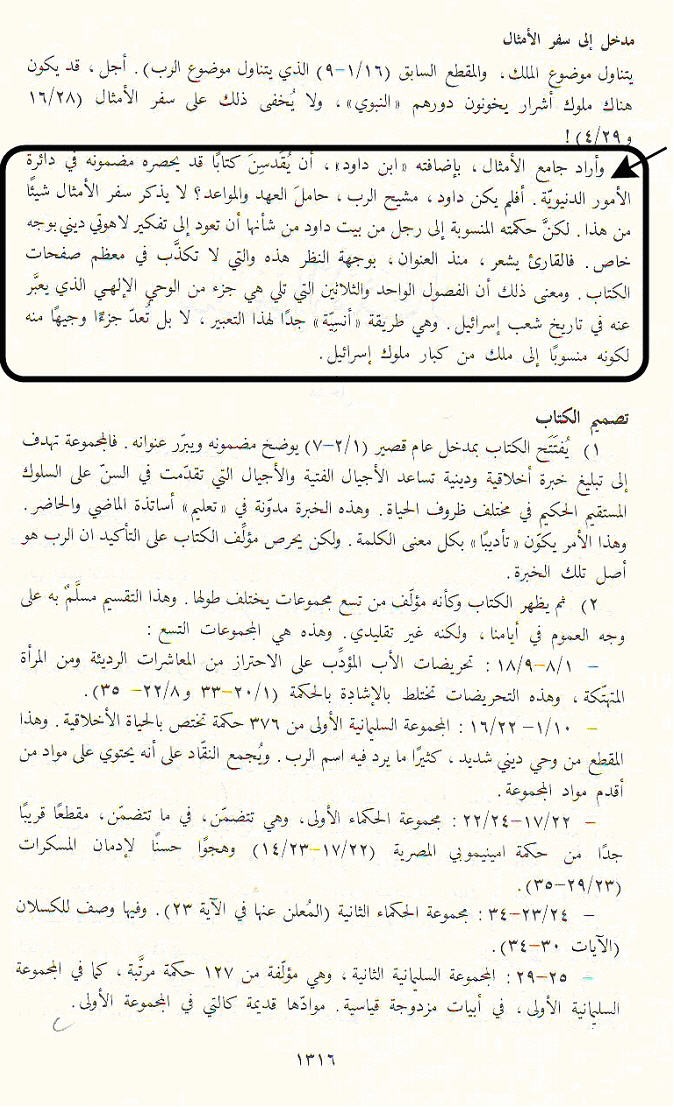 مدخل إلى سفر الأمثال
يتناول موضوع الملك، والمقطع السابق (١/١٦–٩) الذي يتناول موضوع الرب). أجل، قد يكون
هناك ملوك أشرار يخونون دورهم «النبوي»، ولا يُخفى ذلك على سفر الأمثال (١٦/٢٨
و٤/٢٩)!
وأراد جامع الأمثال، بإضافته «ابن داود»، أن يُقَدسِنَ كتابًا قد يحصره مضمونه في دائرة
الأمور الدنيويّة. أفلم يكن داود، مشيح الرب، حاملَ العهد والمواعد؟ لا يذكر سفر الأمثال شيئًا
من هذا. لكنَّ حكمته المنسوبة إلى رجل من بيت داود من شأنها أن تعود إلى تفكير لاهوتي ديني بوجه
خاص. فالقارئ يشعر، منذ العنوان، بوجهة النظر هذه والتي لا تكذَّب في معظم صفحات
الكتاب. ومعنى ذلك أن الفصول الواحد والثلاثين التي تلي هي جزء من الوحي الإلهي الذي يعبَّر
عنه في تاريخ شعب إسرائيل. وهي طريقة «أنسيّة» جدًا لهذا التعبير، لا بل تُعدّ جزءًا وجيهًا منه
لكونه منسوبًا إلى ملك من كبار ملوك إسرائيل.
تصميم الكتاب
١) يُفتَتَح الكتاب بمدخل عام قصير (٢/١–٧) يوضح مضمونه ويبرّر عنوانه. فالمجموعة تهدف
إلى تبليغ خبرة أخلاقية ودينية تساعد الأجيال الفتية والأجيال التي تقدّمت في السنّ على السلوك
المستقيم الحكيم في مختلف ظروف الحياة. وهذه الخبرة مدوّنة في «تعليم» أساتذة الماضي والحاضر.
وهذا الأمر يكوّن «تأديبًا» بكل معنى الكلمة. ولكن يحرص مؤلّف الكتاب على التأكيد ان الرب هو
أصل تلك الخبرة.
٢) ثم يظهر الكتاب وكأنه مؤلّف من تسع مجموعات يختلف طولها. وهذا التقسيم مسلَّمٌ به على
وجه العموم في أيامنا، ولكنه غير تقليدي. وهذه هي المجموعات التسع:
– ٨/١–١٨/٩: تحريضات الأب المؤدِّب على الاحتراز من المعاشرات الرديئة ومن المرأة
المتهتّكة، وهذه التحريضات تختلط بالإشادة بالحكمة (٢٠/١–٣٣ و٢٢/٨– ٣٥).
– ١/١٠– ١٦/٢٢: المجموعة السليمانية الأولى من ٣٧٦ حكمة تختص بالحياة الأخلاقية. وهذا
المقطع من وحي ديني شديد، كثيرًا ما يرد فيه اسم الرب. ويُجمع النقّاد على أنه يحتوي على مواد من
أقدم مواد المجموعة.
– ١٧/٢٢–٢٢/٢٤: مجموعة الحكماء الأولى، وهي تتضمّن، في ما تتضمّن، مقطعًا قريبًا
جدًا من حكمة امينيموبي المصرية (١٧/٢٢–١٤/٢٣) وهجوًا حسنًا لإدمان المسكرات
(٢٩/٢٣–٣٥).
– ٢٣/٢٤–٣٤: مجموعة الحكماء الثانية (المُعلن عنها في الآية ٢٣). وفيها وصف للكسلان
(الآيات ٣٠–٣٤).
– ٢٥–٢٩: المجموعة السليمانية الثانية، وهي مؤلّفة من ١٢٧ حكمة مرتَّبة، كما في المجموعة
السليمانية الأولى، في أبيات مزدوجة قياسية. موادّها قديمة كالتي في المجموعة الأولى.
١٣١٦